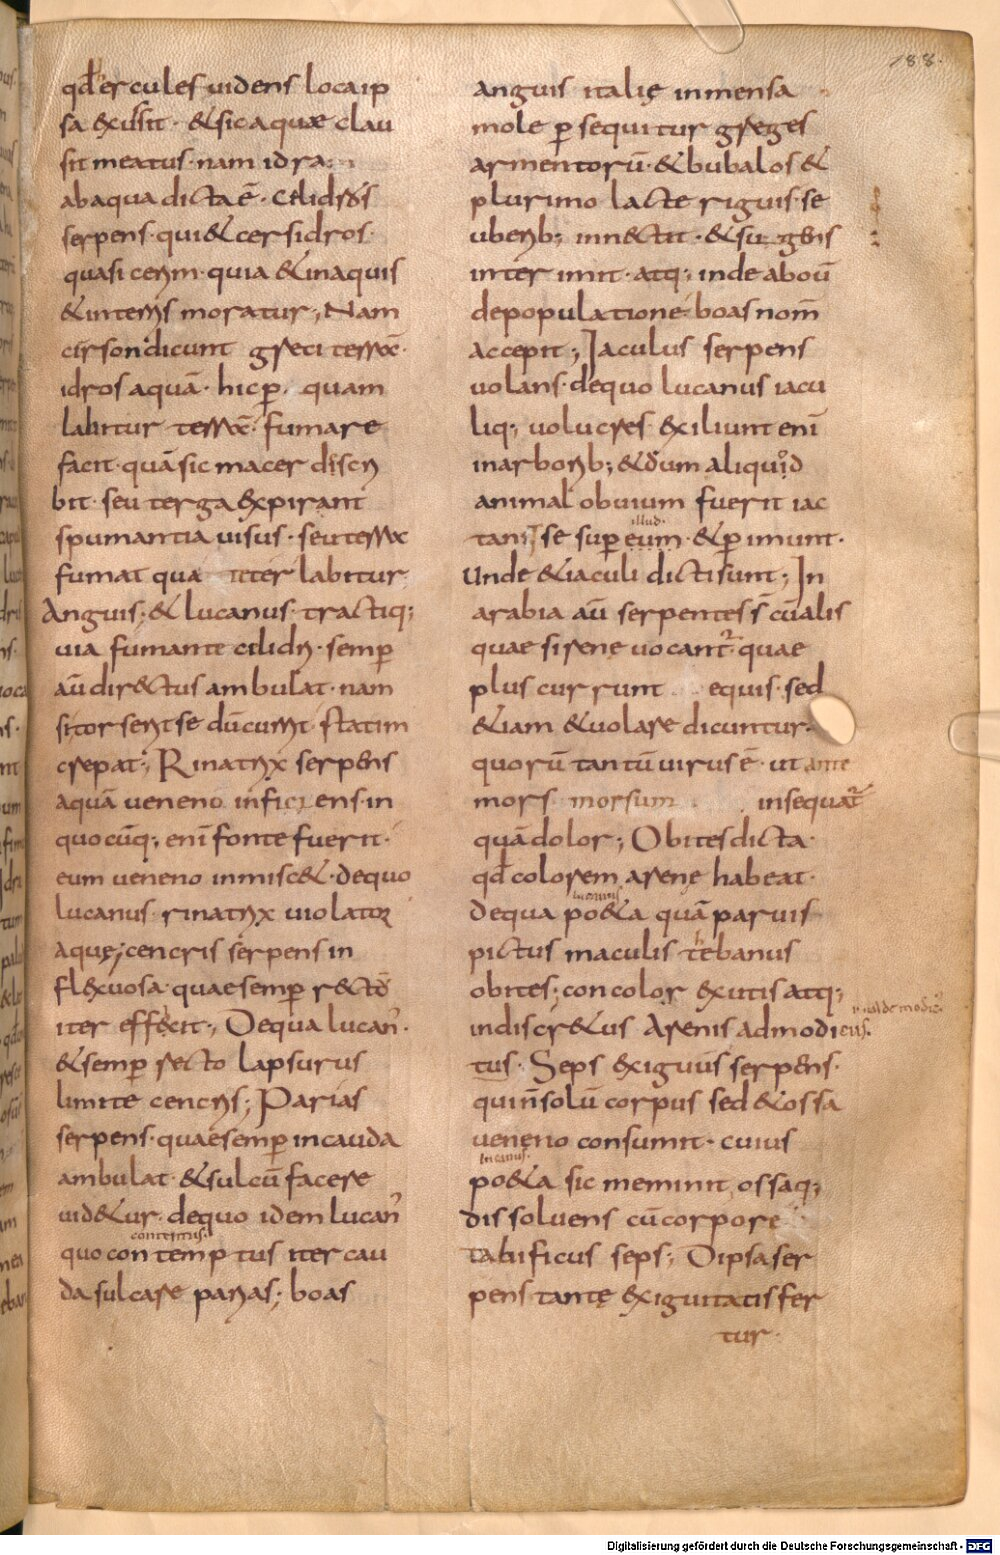 188.
qđ hercules uidens loca ip
sa exussit · & sic aquae clau
sit meatus · nam idra
ab aqua dicta ē · Celidros
serpens · qui & cersidros
quasi cerim · quia & in aquis
& in terris moratur; Nam
cirson dicunt greci terrā ·
idros aquā · hic per quam
labitur terrā · fumare
facit · quā sic macer discri
bit · seu terga expirant
spumantia uisus · seu terra
fumat qua teter labitur
Anguis; & lucanus · tractiq;
uia fumante celidri · semp
aū directus ambulat · nam
si torserit se dū currit · statim
crepat; Rinatrix serpens
aquā ueneno inficiens · in
quocūq; enī fonte fuerit ·
eum ueneno inmiscet · de quo
lucanus · rinatrix uiolator
aquę; cencris serpens in
flexuosa · quae semp rectū
iter efficit; De qua lucan ·
& semp recto lapsurus
limite cencris; Parias
serpens · quae semp in cauda
ambulat · & sulcū facere
uidetur · de quo idem lucan
contentus ·
quo contemptus iter cau
da sulcare parias; boas
anguis italię inmensa
mole psequitur greges
armentorū · & bubalos &
plurimo lacte riguis · se
uberib; innectit · & sugens
interimit · atq; inde a boū
depopulatione boas nom̄
accepit; Iaculus serpens
uolans · de quo lucanus iacu
liq; uolucres exiliunt enī
in arborib; & dum aliquod
animal obuium fuerit iac
illud ·
tant se super eum · & pimunt ·
Unde & iaculi dicti sunt; In
arabia aū serpentes s̄ cū alis
quae sirene uocant · quae
plus currunt equis · sed
& iam & uolare dicuntur ·
quorū tantū uirus ē · ut ante
mors morsum insequat
quā dolor; Obites dicta
qđ colorem arenę habeat ·
lucanus
de qua poeta quā paruis
pictus maculis thebanus
obites; concolor exutis atq;
indiscretus Arenis admodicus ·
tus · Seps exiguus serpens ·
qui n̄ solū corpus sed & ossa
ueneno consumit · cuius
lucanus ·
poeta sic meminit ossaq;
dissoluens cū corpore
tabificus seps; Dipsa ser
pens tantę exiguitatis fer
tur ·
Digitalisierung gefördert durch die Deutsche Forschungsgemeinschaft - DFG